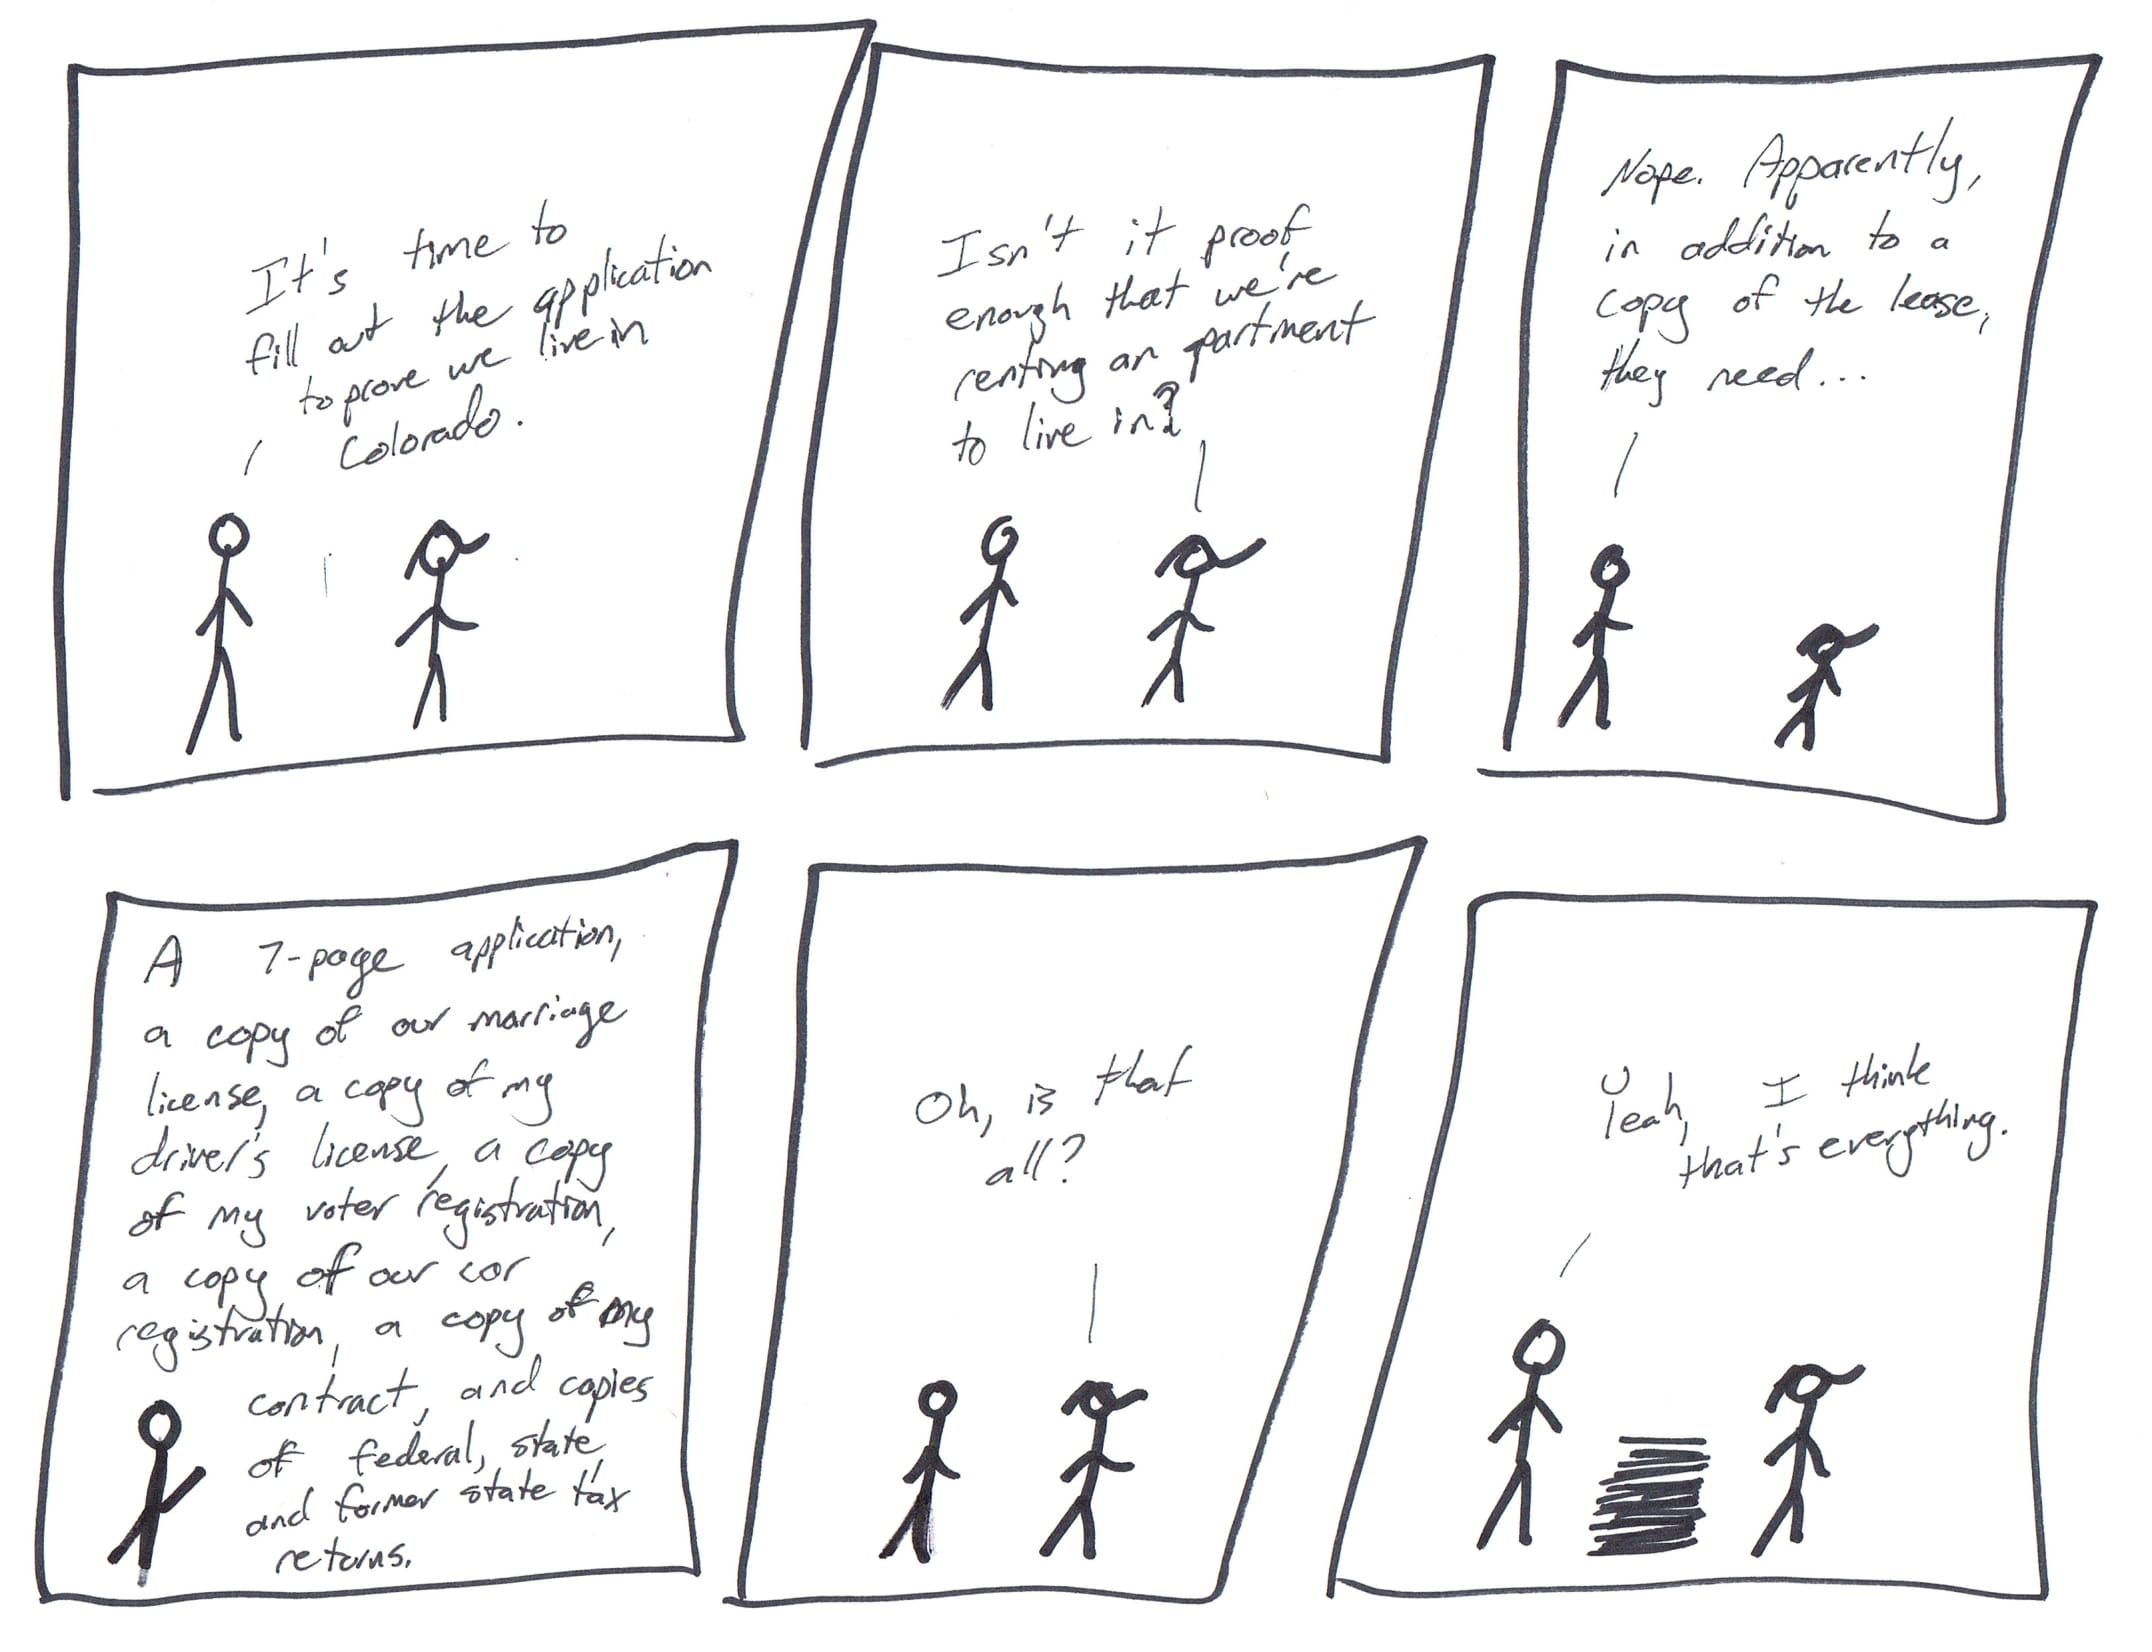 It's time to
fill out the application
to prove we live in
Colorado.
Isn't it proof
enough that we're
renting an apartment
to live in?
Nope. Apparently,
in addition to a
copy of the lease,
they need...
A 7-page application,
a copy of our marriage
license, a copy of my
driver's license, a copy
of my voter registration,
a copy of our car
registration, a copy of my
contract, and copies
of federal, state,
and former state tax
returns.
Oh, is that
all?
Yeah, I think
that's everything.